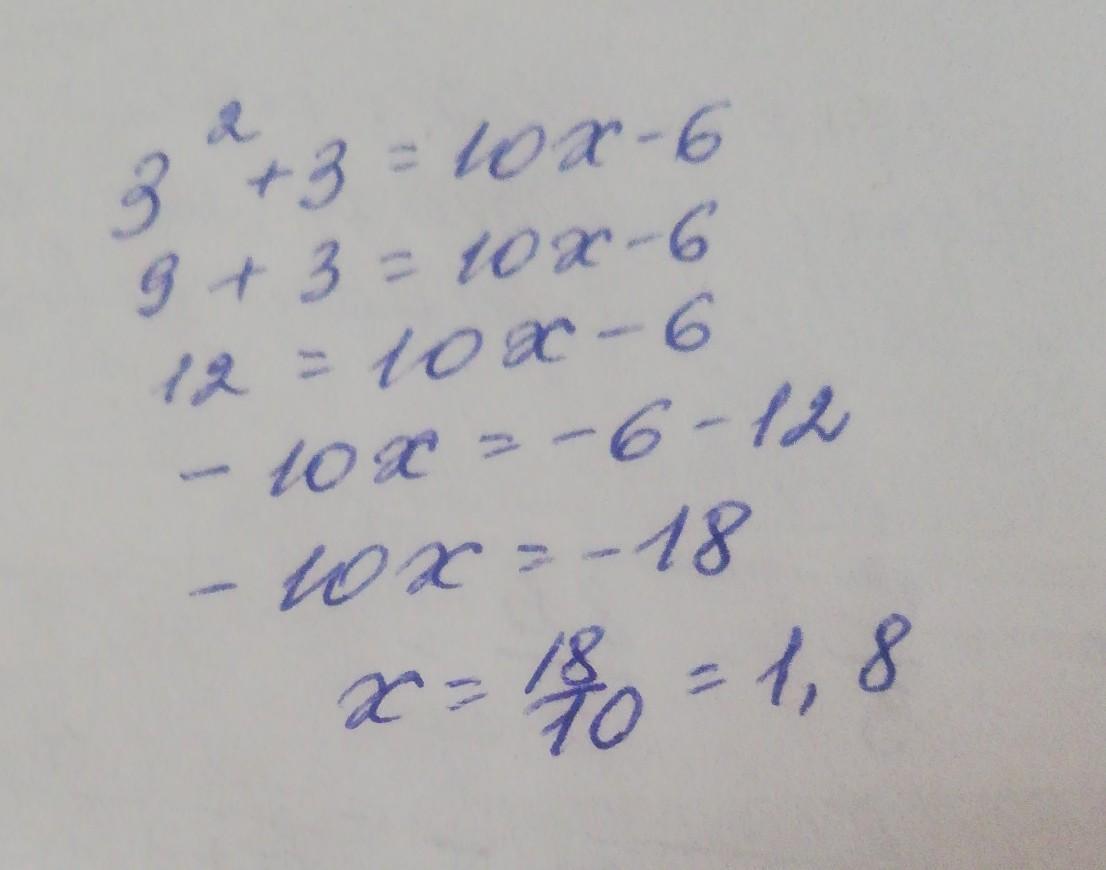 3² + 3 = 10x - 6
9 + 3 = 10x - 6
12 = 10x - 6
- 10x = - 6 - 12
- 10x = - 18
x = 18/10 = 1,8